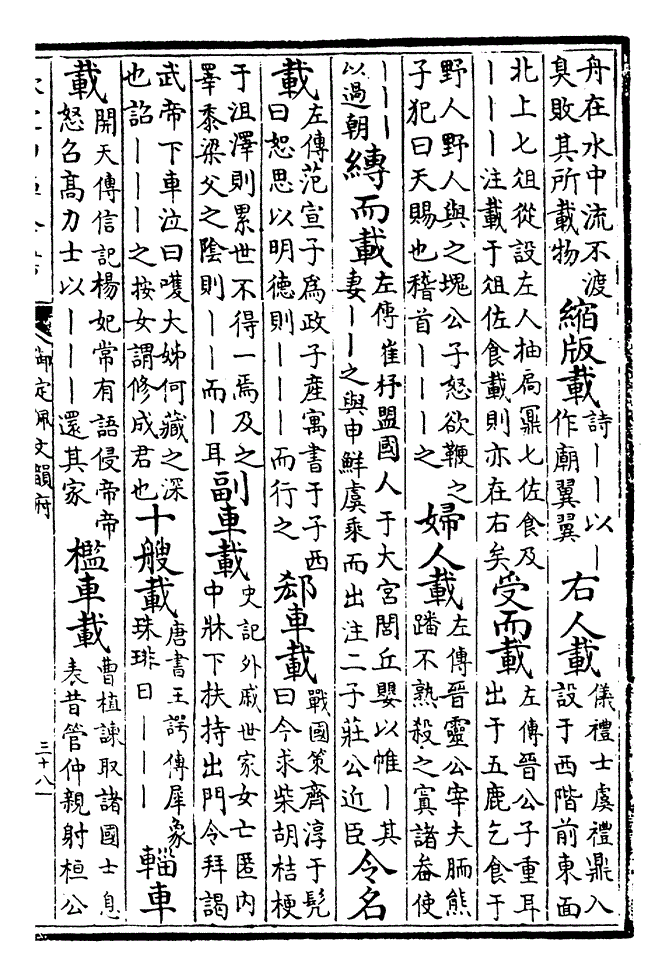 舟在水中流不渡臭敗其所載物縮版載詩｜｜以｜作廟翼翼右人載儀禮士虞禮鼎入設于西階前東面
北上匕俎從設左人抽扃鼏匕佐食及｜｜｜注載于俎佐食載則亦在右矣受而載左傳晉公子重耳出于五鹿乞食于
野人野人與之塊公子怒欲鞭之子犯曰天賜也稽首｜｜｜之婦人載左傳晉靈公宰夫胹熊蹯不熟殺之寘諸畚使
｜｜｜以過朝縳而載左傳崔杼盟國人于大宮閭丘嬰以帷｜其妻｜｜之與申鮮虞乘而出注二子莊公近臣令名
載左傳范宣子為政子產寓書于子西曰恕思以明德則｜｜｜而行之郄車載戰國策齊淳于髡曰今求柴胡桔梗
于沮澤則累世不得一焉及之睪黍梁父之陰則｜｜而｜耳副車載史記外戚世家女亡匿内中牀下扶持出門令拜謁
武帝下車泣曰嚄大姊何藏之深也詔｜｜｜之按女謂修成君也十艘載唐書王諤傳犀象珠琲日｜｜｜輜車
載開天傳信記楊妃常有語侵帝帝怒召髙力士以｜｜｜還其家檻車載曹植諫取諸國士息表昔管仲親射桓公
御定佩文韻府
三十八